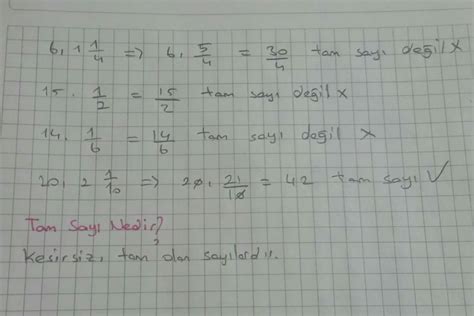 6 . 1 1/4 => 6 . 5/4 = 30/4 tam sayı değil X
15 . 1/2 = 15/2 tam sayı değil X
14 . 1/6 = 14/6 tam sayı değil X
20 . 2 1/10 => 20 . 21/10 = 42 tam sayı ✓
Tam Sayı Nedir?
Kesirsiz, tam olan sayılardır.